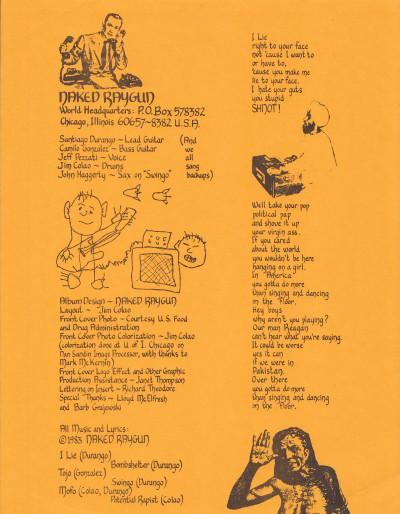 NAKED RAYGUN
World Headquarters: P.O. Box 578382
Chicago, Illinois 60657~8382 U.S.A.
Santiago Durango ~ Lead Guitar (And
Camilo Gonzalez ~ Bass Guitar we
Jeff Pezzati ~ Voice all
Jim Colao ~ Drums sang
John Haggerty ~ Sax on "Swingo" backups)
Album Design ~ NAKED RAYGUN
Layout ~ Jim Colao
Front Cover Photo ~ Courtesy U.S. Food
and Drug Administration
Front Cover Photo Colorization ~ Jim Colao
(colorization done at U. of I. Chicago on
Image Processor, with thanks to
Mark McKernin)
Front Cover Logo Effect and Other Graphic
Production Assistance ~ Janet Thompson
Lettering on Insert ~ Richard Theodore
Special Thanks ~ Lloyd McElfresh
and Barb Grajewski
All Music and Lyrics:
©1983 NAKED RAYGUN
I Lie (Durango)
Bombshelter (Durango)
Tojo (Gonzalez)
Swingo (Durango)
Mofo (Colao, Durango)
Potential Rapist (Colao)
I Lie
right to your face
not 'cause I want to
or have to,
'cause you make me
lie to your face.
I hate your guts
you stupid
SHNOT!
We'll take your pop
political pap
and shove it up
your virgin ass.
If you cared
about the world
you wouldn't be here
hanging on a girl.
In "America"
you gotta do more
than singing and dancing
on the "Floor.
Hey boys
why aren't you playing?
Our man Reagan
can't hear what you're saying.
It could be worse
yes it can
if we were in
Pakistan.
Over there
you gotta do more
than singing and dancing
on the "Floor.